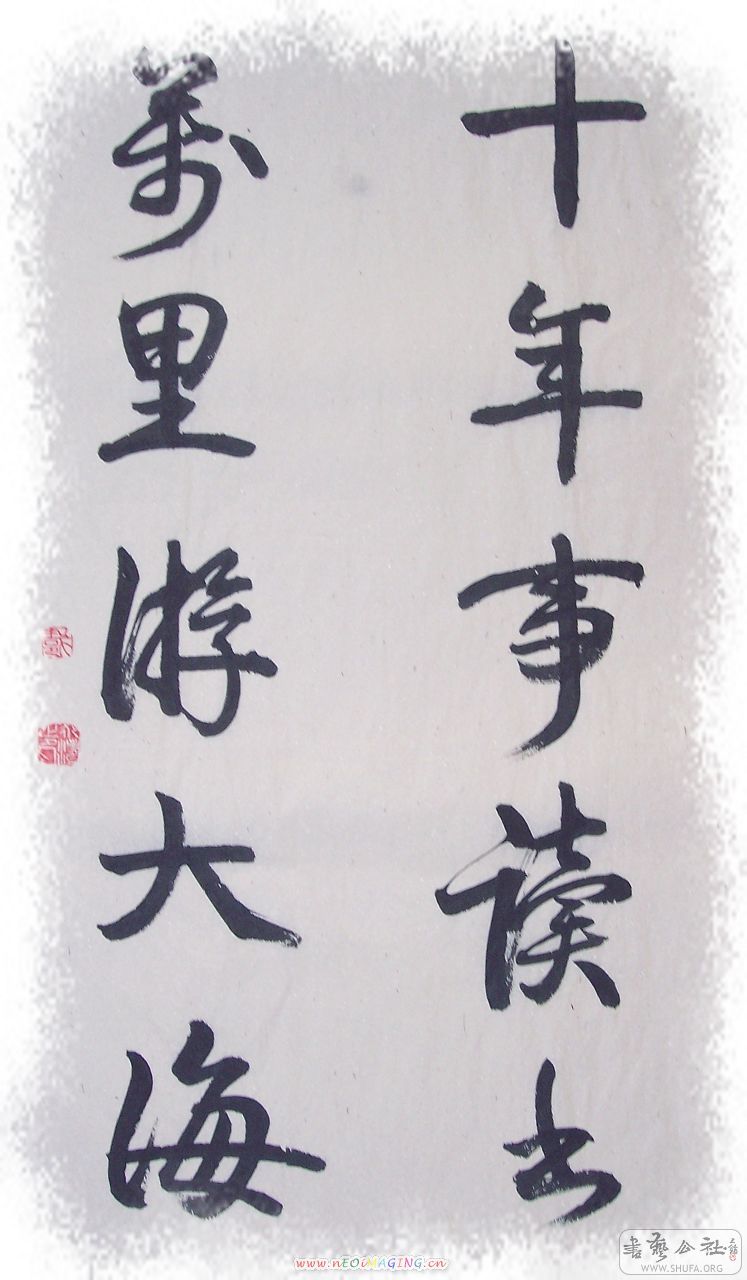 十年事读书
萬里游大海
www.nEOiMAGiNG.cn
書藝公社
WWW.SHUFA.ORG